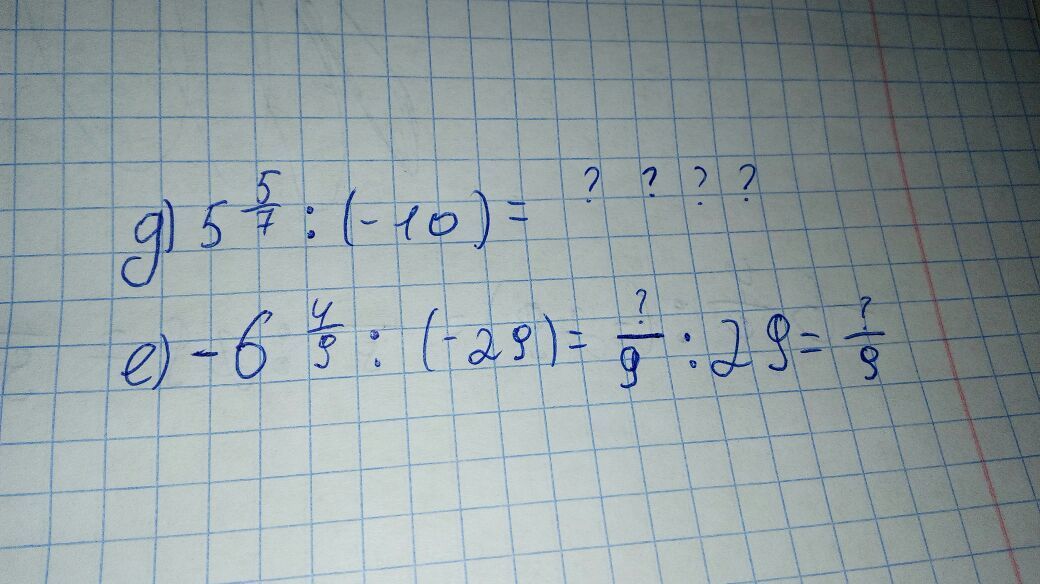 д) 5 5/7 : (-10) = ? ? ? ?
е) -6 4/9 : (-29) = ?/9 : 29 = ?/9